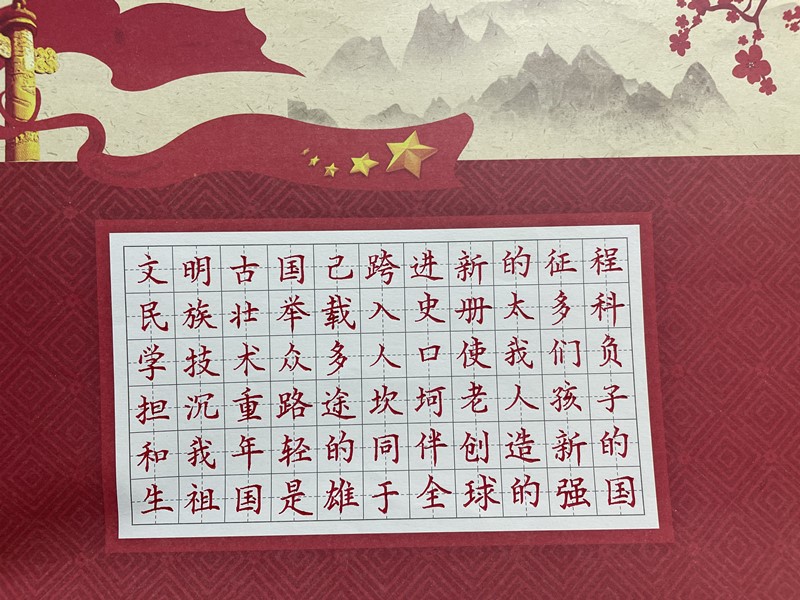 文明古国己跨进新的征程
民族壮举载入史册太多科
学技术众多人口使我们负
担沉重路途坎坷老人孩子
和我年轻的同伴创造新的
生祖国是雄于全球的强国